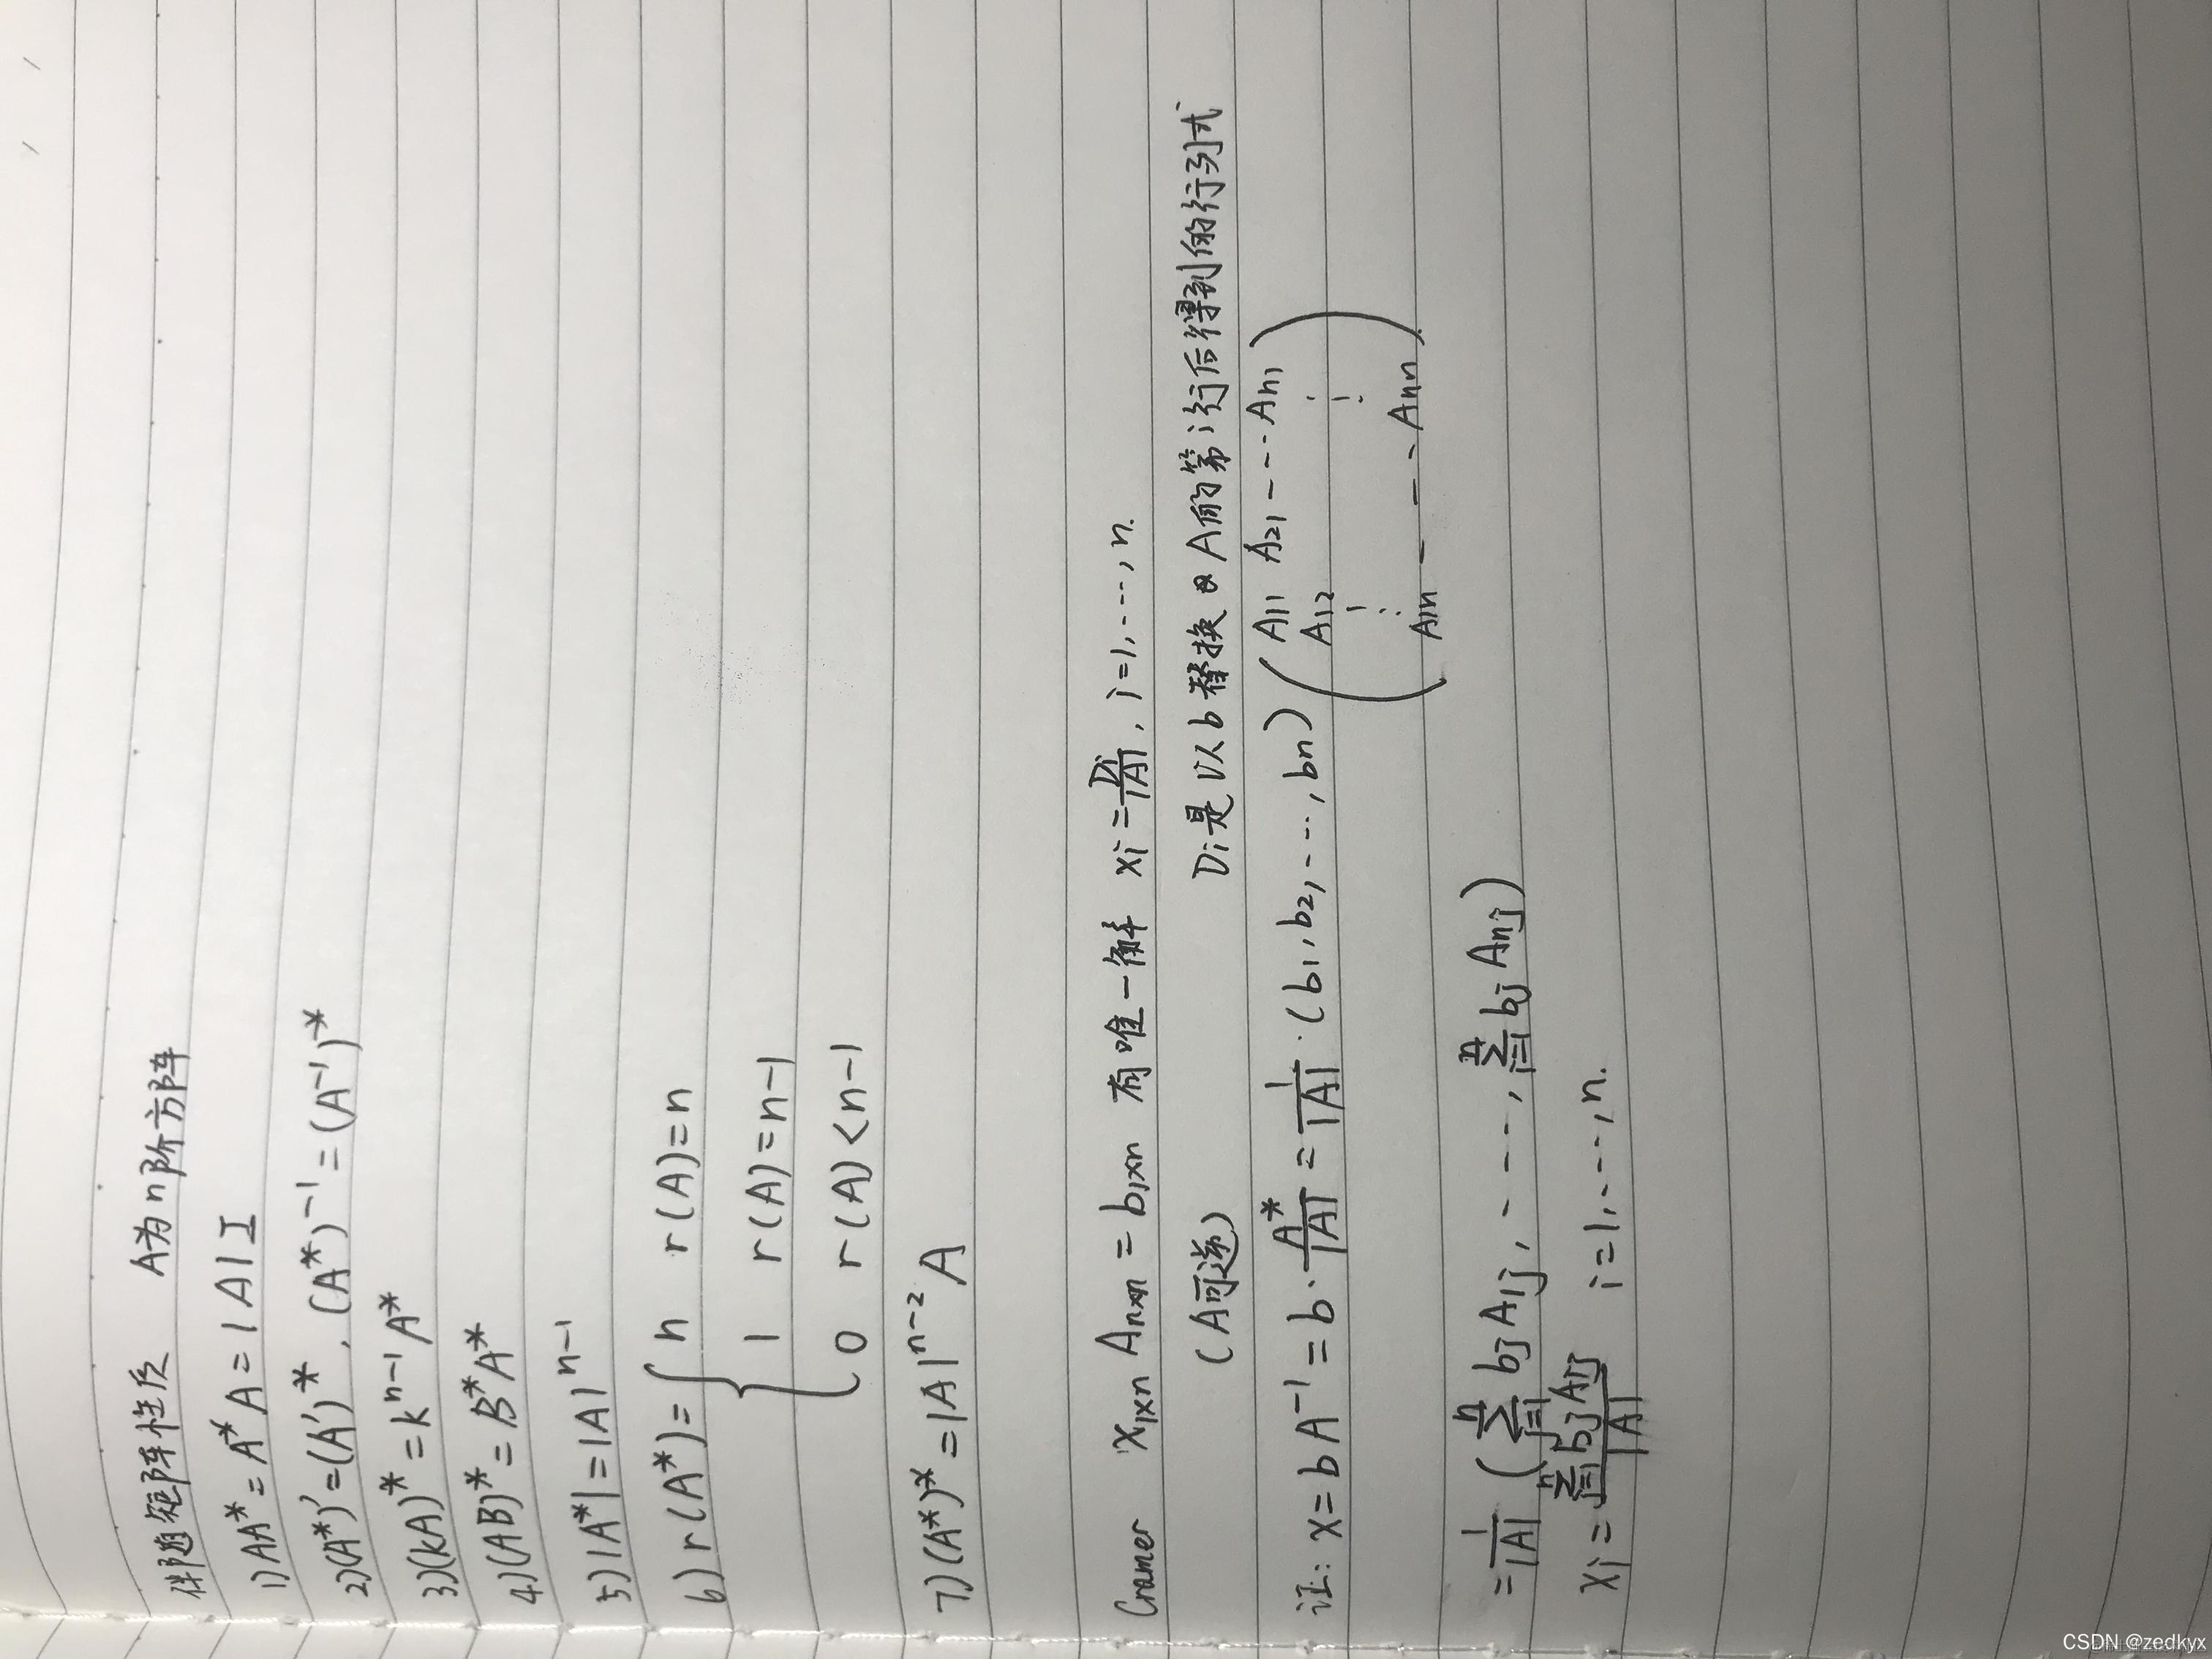 伴随矩阵性质 A为n阶方阵
1) AA* = A*A = |A|I
2) (A*)' = (A')*, (A*)⁻¹ = (A⁻¹)*
3) (kA)* = kⁿ⁻¹A*
4) (AB)* = B*A*
5) |A*| = |A|ⁿ⁻¹
6) r(A*) = { n r(A)=n
1 r(A)=n-1
0 r(A)<n-1
7) (A*)* = |A|ⁿ⁻² A
Cramer x₁ₓₙ Aₙₓₙ = b₁ₓₙ 有唯一解 xᵢ = Dᵢ/|A|, i=1,…,n.
(A可逆) Dᵢ是以b替换A的第i行后得到的行列式
证: x = bA⁻¹ = b · A*/|A| = 1/|A| · (b₁, b₂, …, bn) ( A₁₁ A₂₁ --- An₁
A₁₂ ⋮
⋮
A₁n --- Ann )
= 1/|A| ( Σⁿⱼ₌₁ bⱼA₁ⱼ, ----, Σⁿᵢ₌₁ bⱼAnⱼ )
xᵢ = Σⁿⱼ₌₁ bⱼAᵢⱼ / |A| i=1,…,n.
CSDN @zedkyx